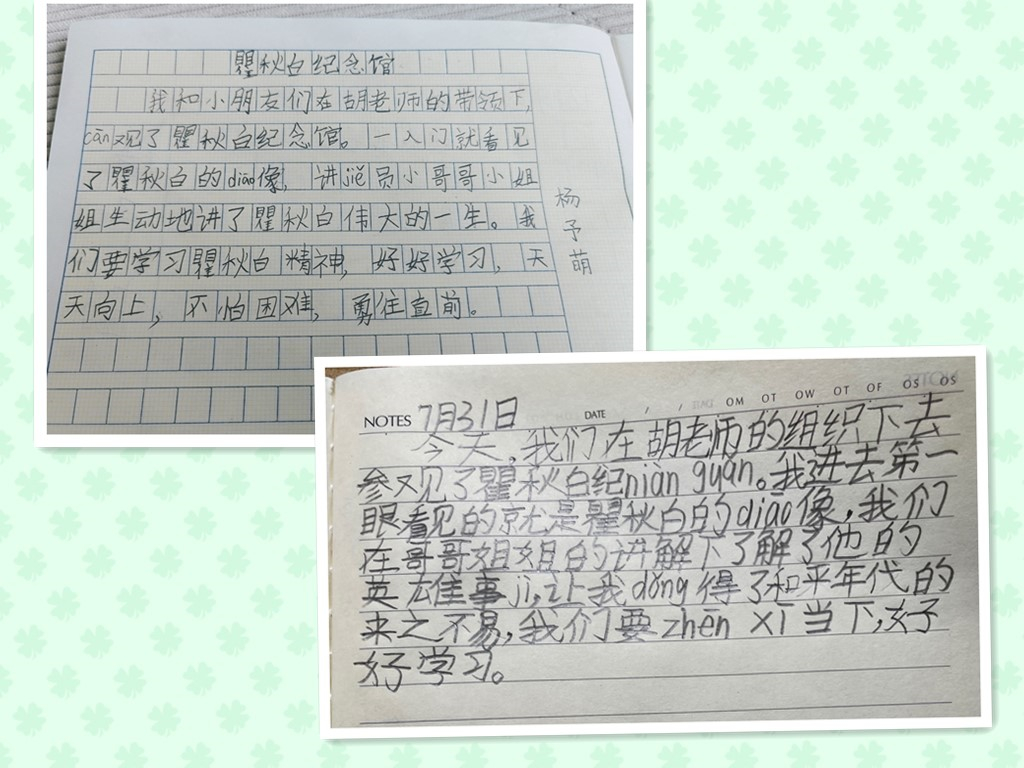 瞿秋白纪念馆
我和小朋友们在胡老师的带领下,
cān观了瞿秋白纪念馆。一入门就看见
了瞿秋白的diāo像,讲jiě员小哥哥小姐
姐生动地讲了瞿秋白伟大的一生。我
们要学习瞿秋白精神,好好学习,天
天向上,不怕困难,勇往直前。
杨予萌
NOTES 7月31日 DATE / / OM OT OW OT OF OS OS
今天,我们在胡老师的组织下去
参观了瞿秋白纪niàn guǎn。我进去第一
眼看见的就是瞿秋白的diāo像,我们
在哥哥姐姐的讲解下了解了他的
英雄事jì,让我dǒng得了和平年代的
来之不易,我们要zhēn xī当下,好
好学习。